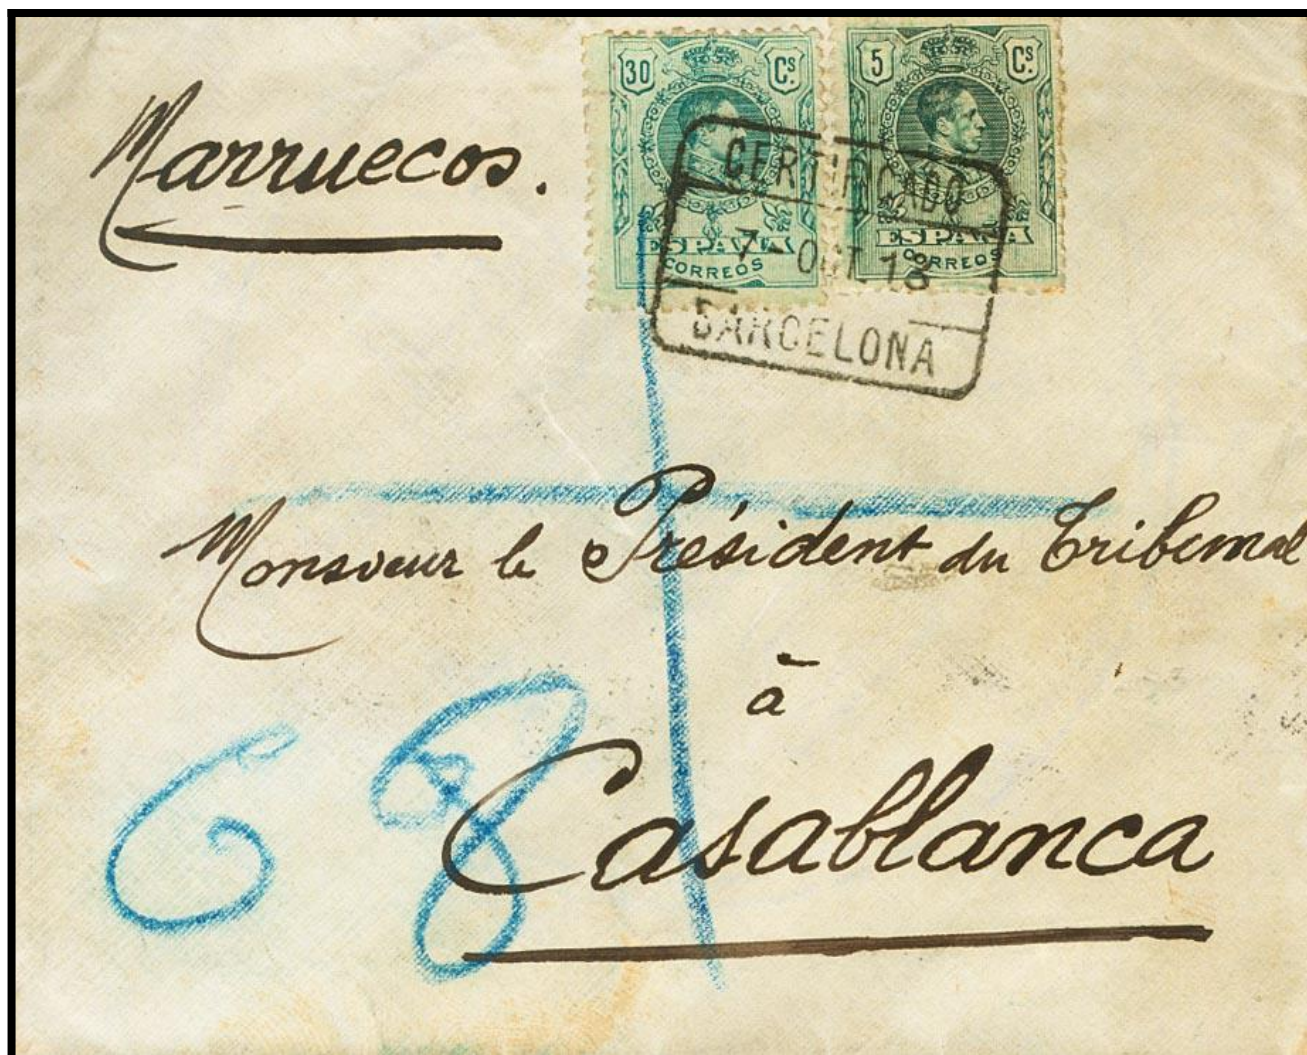 30 Cs.
ESPAÑA
CORREOS
5 Cs.
ESPAÑA
CORREOS
CERTIFICADO
7 - OCT 13
BARCELONA
Marruecos.
Monsieur le Président du Tribunal
à
Casablanca
68